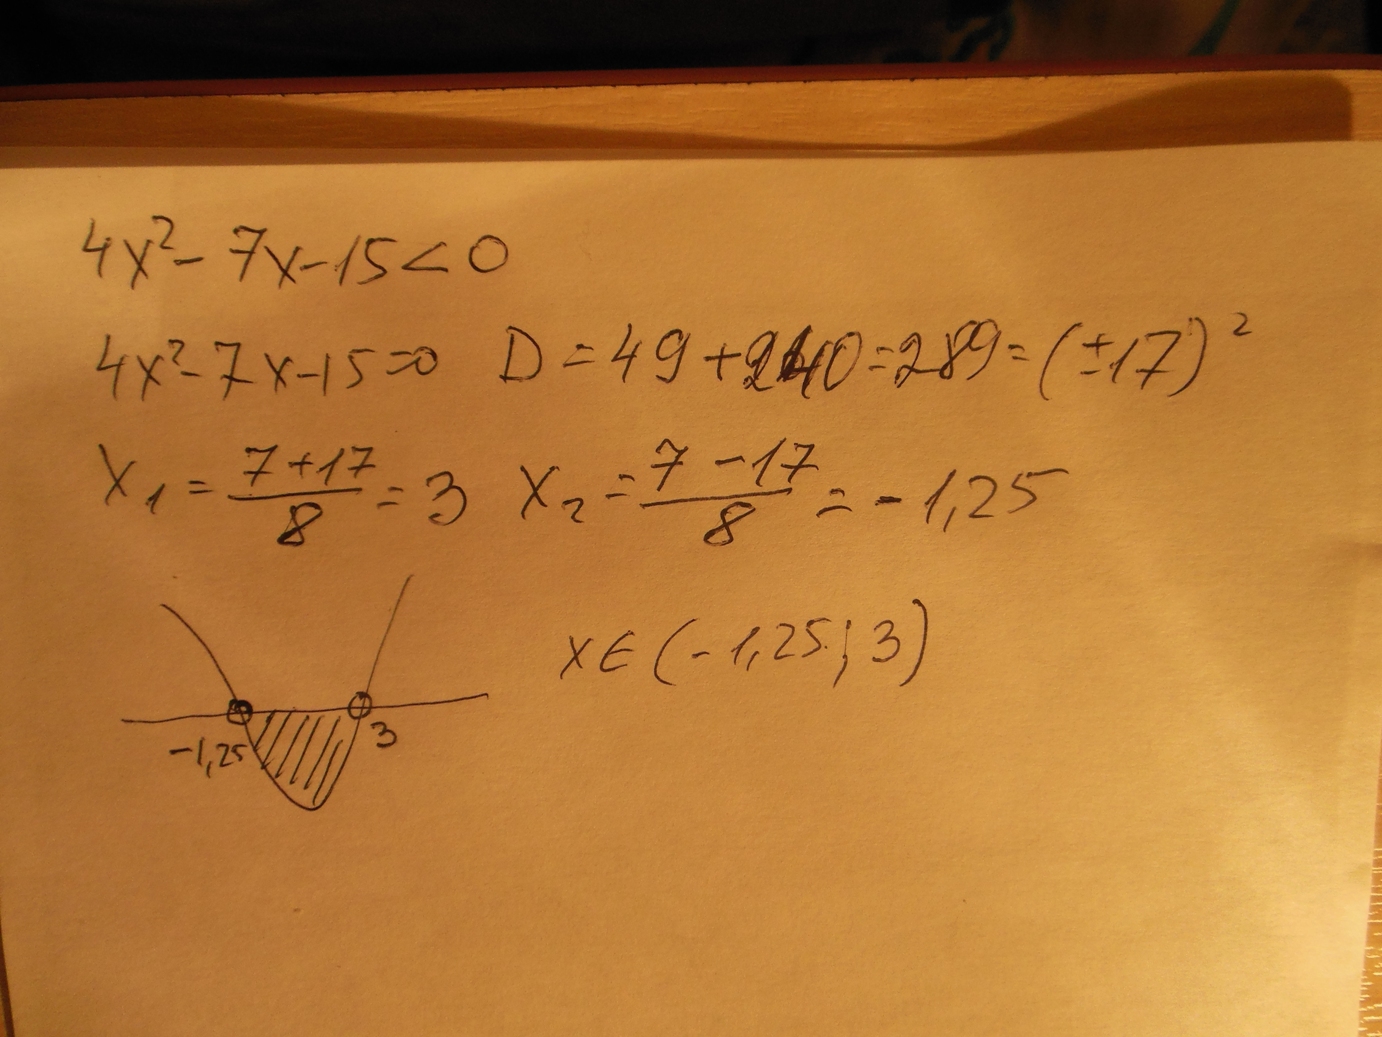 4x² - 7x - 15 < 0
4x² - 7x - 15 = 0 D = 49 + 240 = 289 = (±17)²
x₁ = (7 + 17)/8 = 3 x₂ = (7 - 17)/8 = - 1,25
x ∈ (- 1,25; 3)
-1,25 3